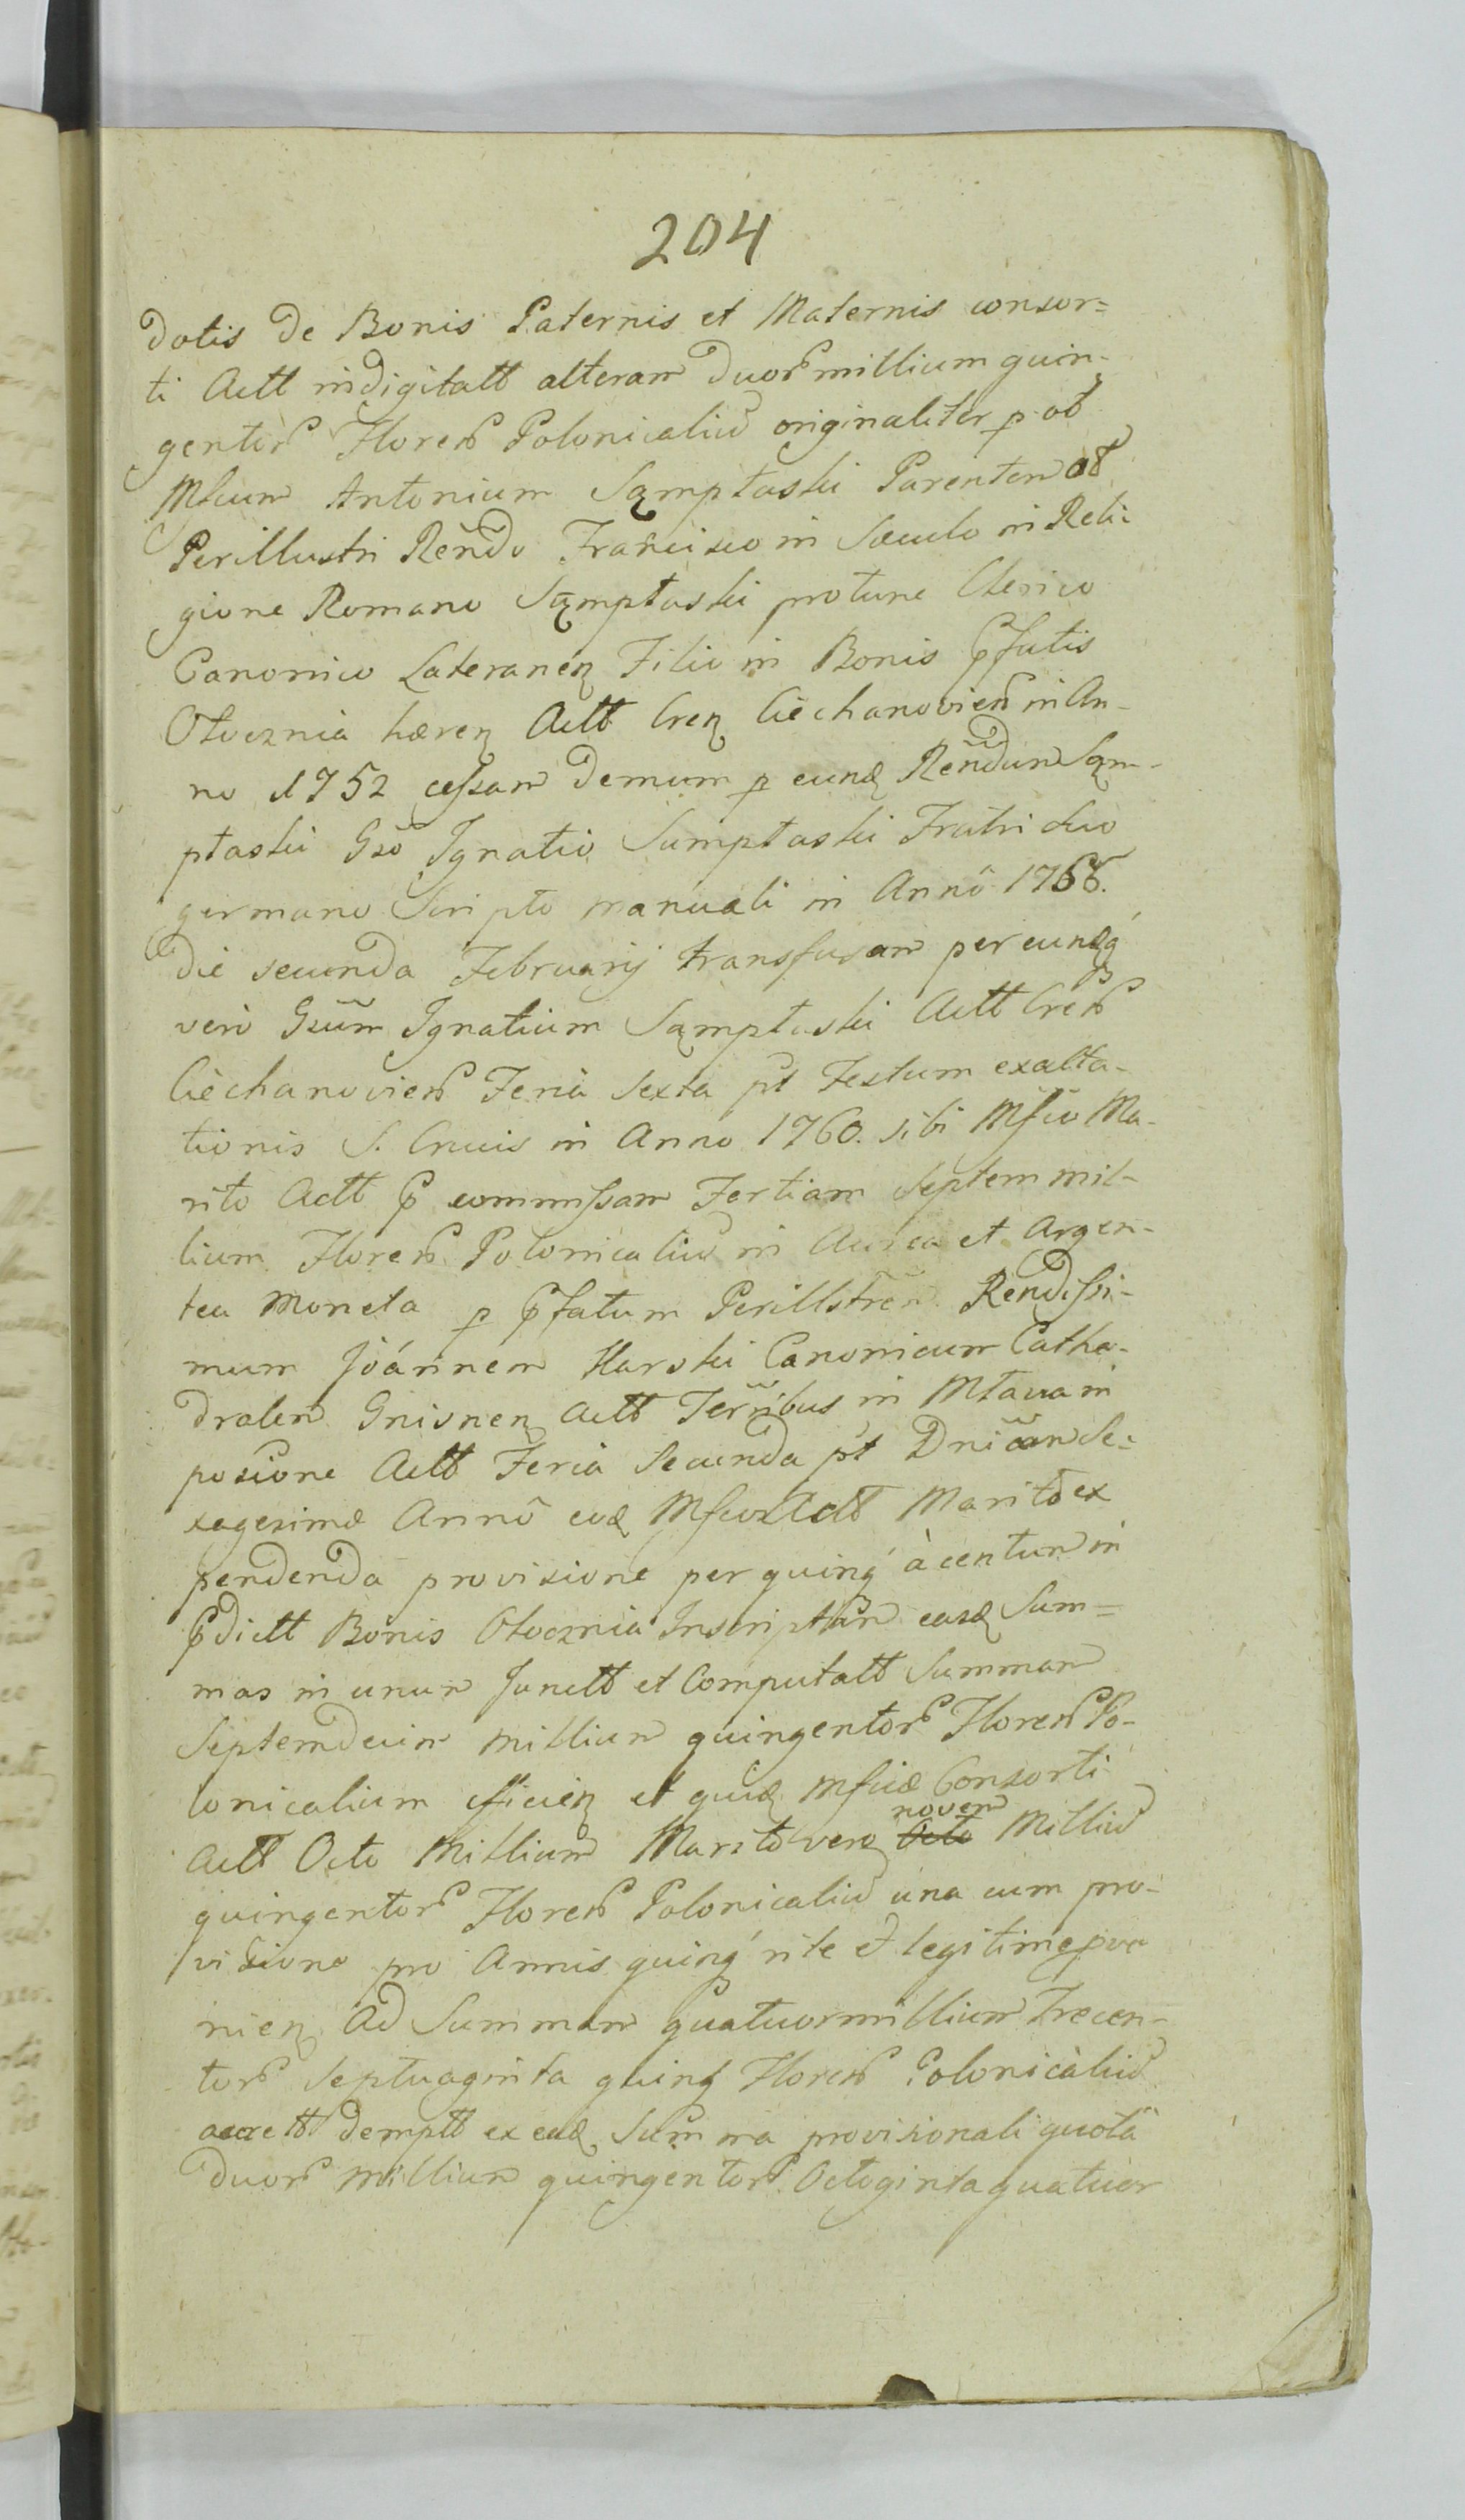 204
dotis de Bonis Paternis et Maternis consor=
ti Actt indigitatt alteram duor millium quin-
gentor Floren Polonicaliu originaliter p ol
Mfcum Antonium Sąmptaski Parentem ol
Perillustri Rendo Francisco in Sæculo in Reli-
gione Romano Sąmptaski protunc Clerico
Canonico Lateranen Filio in Bonis pfatis
Otocznia hæren Actt Cren Ciechanovien in An-
no 1752 cessam demum p eund Rendum Sąm-
ptaski Gso Ignatio Sumptaski Fratri suo
germano Scripto manuali in Anno
die secunda Februarij transfusam per eundq
vero Gsum Ignatium Sąmptaski Actt Cren
Ciechanovien Feria Sexta pt Festum exalta-
tionis S. Crucis in Anno 1760. sibi Mfco Ma-
rito Actt p commissam Tertiam Septem mil-
lium Floren Polonicaliu in Aurea et Argen-
tea Moneta p pfatum Perillstrem Rendissi-
mum Joannem Karski Canonicum Cathe-
dralem Gnisnen Actt Terribus in Mlava in
posione Actt Feria Secunda pt Dnicam Se-
xagesimæ Anno eod Mfco Actt Marito ex
pendenda provisione per quinq à centum in
pdictt Bonis Otocznia Inscriptam easd Sum=
mas in unum Junctt et Computatt Summam
Septemdecim millium quingentor Floren Po-
lonicalium efficien et quid Mfcæ Consorti
Actt Octo Millium Marito vero Octo novem Milliu
quingentor Floren Polonicaliu una cum pro-
visione pro Annis quinq rite et legitime prove
nien Ad Summam quatuor millium Trecen-
tor Septuaginta quinq Floren Polonicaliu
accrett demptt ex ead Summa provisionali quota
duor millium quingentor Octoginta quatuor